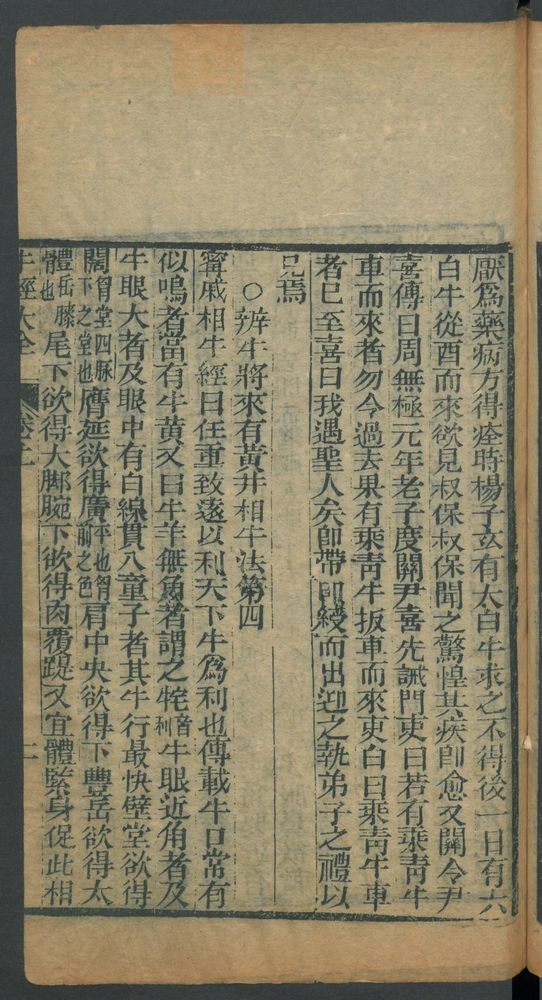 厭爲藥病方得痊時楊子玄有大白牛求之不得後一日有六
白牛從西而來欲見叔保叔保聞之驚惶其疾即愈又關令尹
喜傳曰周無極元年老子度關尹喜先誡門吏曰若有乘青牛
車而來者勿令過去果有乘青牛扳車而來吏白曰乘青牛車
者已至喜曰我遇聖人矣即帶印綬而出迎之執弟子之禮以
見焉
○辨牛將來有黃并相牛法第四
甯戚相牛經曰任重致遠以利天下牛爲利也傳載牛口常有
似鳴者當有牛黃又曰牛羊無角者謂之牤音利牛眼近角者及
牛眼大者及眼中有白線貫八童子者其牛行最快壁堂欲得
闊胷堂四脉下之堂也膺延欲得廣平也胷前之色肩中央欲得下豐岳欲得太
體岳膝也尾下欲得大脚腕下欲得肉覆蹄又宜體緊身促此相
牛經大全 卷之 二